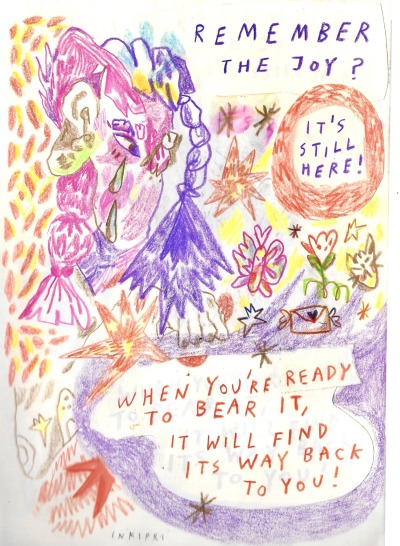 REMEMBER
THE JOY?
IT'S
STILL
HERE!
WHEN YOU'RE READY
TO BEAR IT,
IT WILL FIND
ITS WAY BACK
TO YOU!
INKIPRI